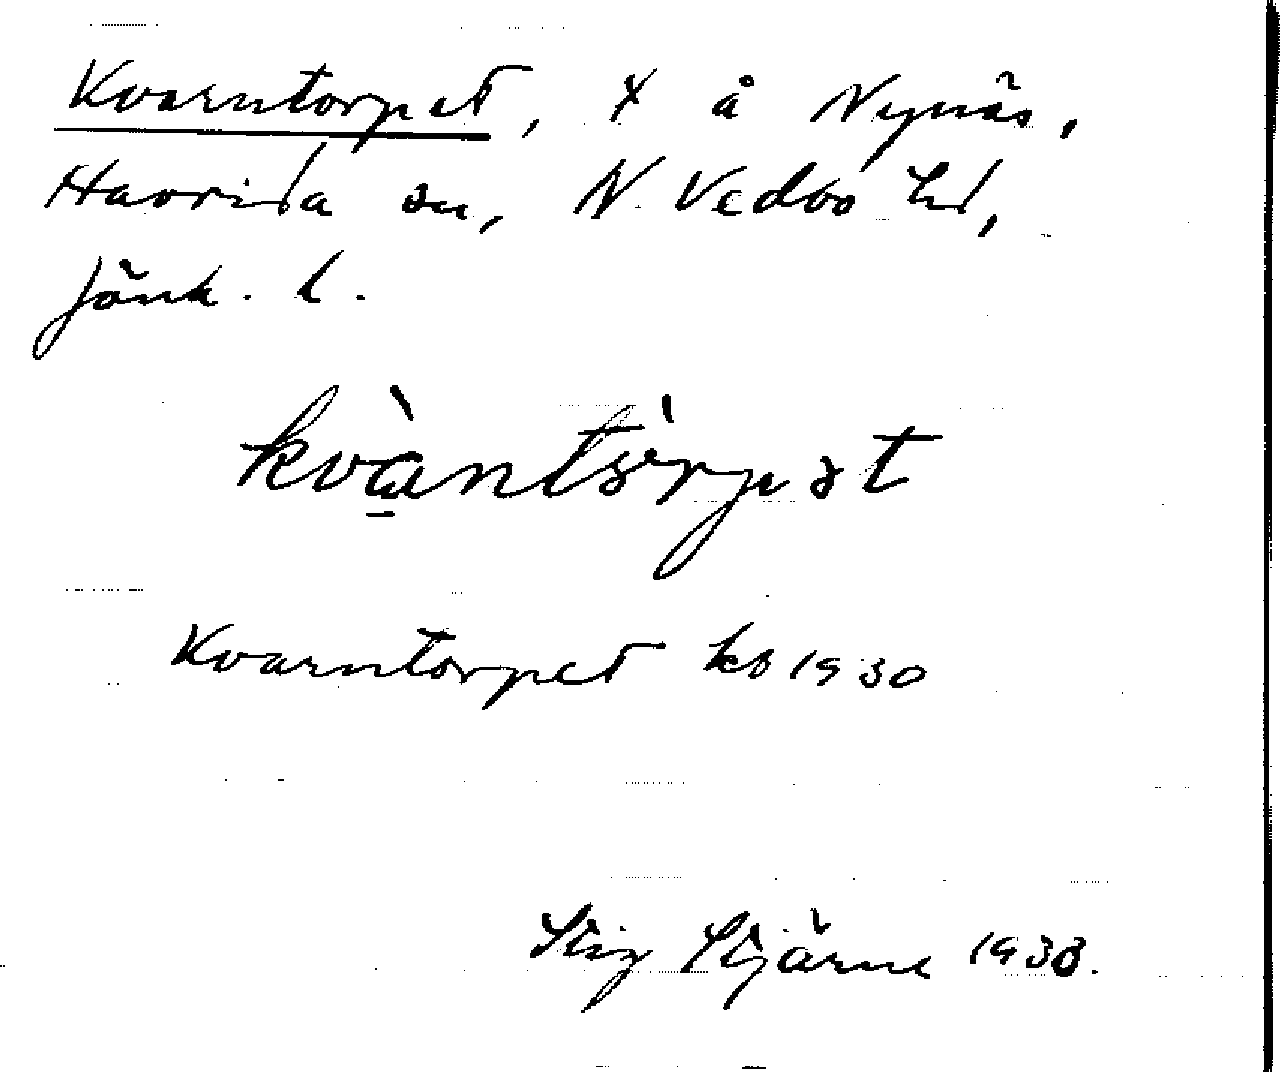 Kvarntorpet, x å Nynäs,
Haurida sn, N. Vedbo hd,
Jönk. l.
kvàntòrpət
Kvarntorpet kb 1930
Stig Stjärne 1933.